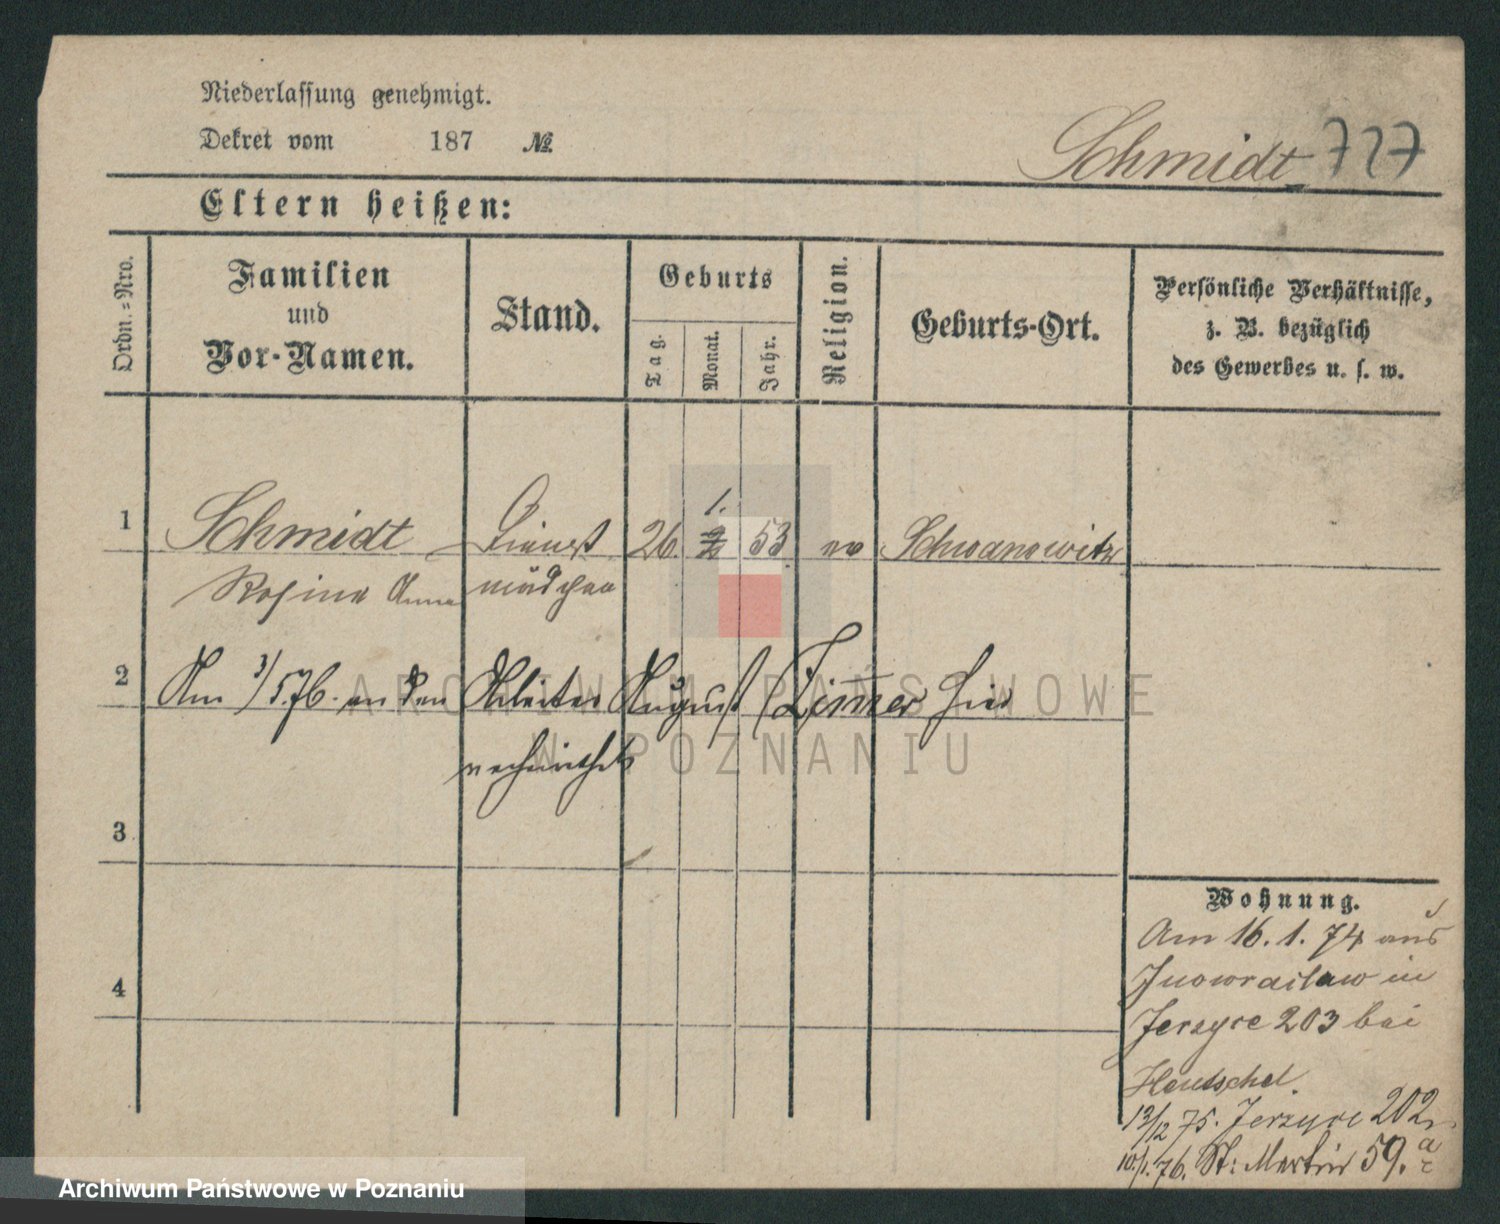 Niederlassung genehmigt.
Dekret vom 187 №
Schmidt 727
Eltern heißen:
Ordn.=Nro.
Familien
und
Vor-Namen.
Stand.
Geburts
Tag.
Monat.
Jahr.
Religion.
Geburts-Ort.
Persönliche Verhältnisse,
z. B. bezüglich
des Gewerbes u. s. w.
1.
1 Schmidt Dienst 26. 2 53 ev Schwanowitz
Rosina Anna mädchen
2 Am 3/5 76. an den Arbeiter August Zimmer hier
verheirathet
3
4
Wohnung.
Am 16. 1. 74 aus
Inowraclaw in
Jerzyce 203 bei
Hentschel.
13/12 75. Jerzyce 202
10/1. 76. St: Martin 59.
ARCHIWUM PAŃSTWOWE
W POZNANIU
Archiwum Państwowe w Poznaniu